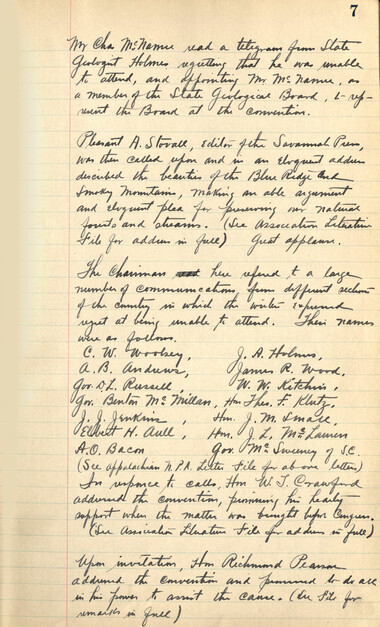 7
Mr Chas McNamee read a telegram from State
Geologist Holmes regretting that he was unable
to attend, and appointing Mr McNamee, as
a member of the State Geological Board, to rep-
resent the Board at the convention.
Pleasant A. Stovall, Editor of the Savannah Press,
was then called upon and in an eloquent address
described the beauties of the Blue Ridge and
Smoky Mountains, making an able argument
and eloquent plea for preserving our natural
forests and streams. (See Association Literature
File for address in full) Great applause.
The Chairman here referred to a large
number of communications, from different sections
of the country in which the writer expressed
regret at being unable to attend. Their names
were as follows.
C. W. Woolsey, J. A. Holmes,
A. B. Andrews, James R. Wood,
Gov. D. L. Russell, W. W. Kitchin,
Gov. Benton McMillan, Hon Theo. F. Klutz,
J. J. Jenkins, Hon. J. M.
Elbert H. Aull, Hon. J. L. McLaurin
A. O. Bacon Gov. McSweeney of S.C.
(See Appalachian N.P.A. Letter File for above letters)
In response to calls, Hon W. T. Crawford
addressed the convention, promising his hearty
support when the matter was brought before Congress.
(See Association Literature File for address in full)
Upon invitation, Hon Richmond Pearson
addressed the convention and promised to do all
in his power to assist the cause. (See File for
remarks in full)